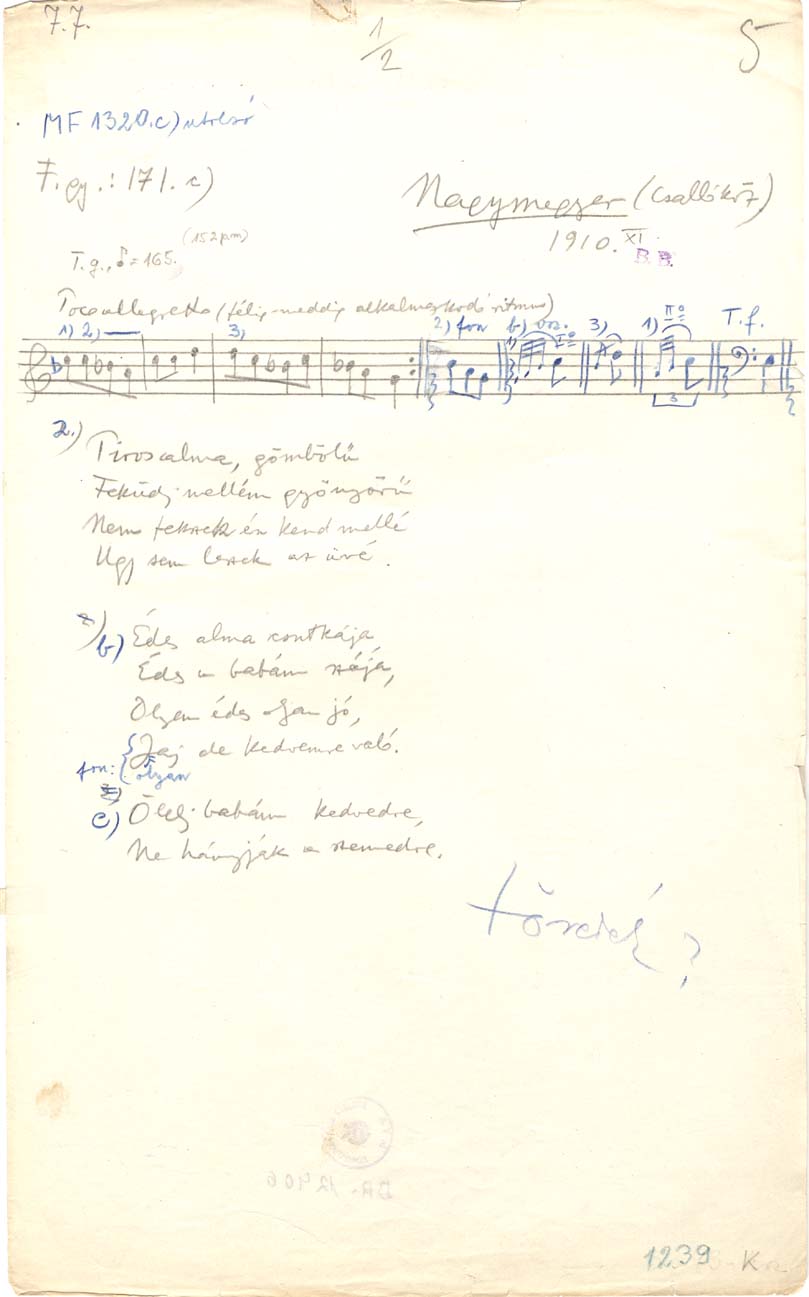 7.7.
1/2
5
MF 1320.c) utolsó
F. gy.: 171. c)
Nagymegyer (Csallóköz)
1910. XI.
B.B.
T.g., ♪=165. (152 pm)
Poco allegretto (félig-meddig alkalmazkodó ritmus)
1) 2) 3) 2) fon b) vsz. I⁰ 3) 1) II⁰ T.f.
3
2.) Piros alma, gömbölű
Feküdj mellém gyönyörű
Nem fekszek én kend mellé
Ugy sem leszek az üvé.
b) Édes alma csutkája,
Édes a babám szája,
Olyan édes olyan jó,
Jaj de kedvemre való.
fon: olyan
c) Ölelj babám kedvedre,
Ne hányják a szemedre.
?
DR. 12406
1239